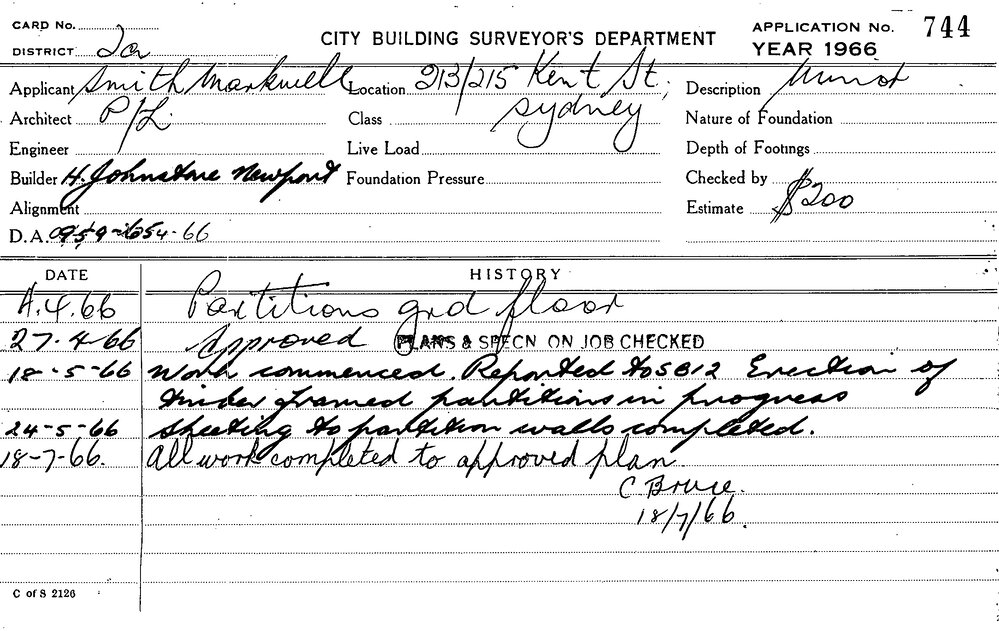 CARD No.
DISTRICT 2a
CITY BUILDING SURVEYOR'S DEPARTMENT
APPLICATION No. 744
YEAR 1966
Applicant Smith Markwell P/L.
Location 213/215 Kent St, Sydney
Description Minor
Architect
Class
Nature of Foundation
Engineer
Live Load
Depth of Footings
Builder H. Johnstone Newport
Foundation Pressure
Checked by
Alignment
Estimate $200
D.A. 66
DATE HISTORY
4.66 Partitions grd floor
27-4-66 Approved PLANS & SPECN ON JOB CHECKED
18-5-66 Work commenced. Reported to SB12 Erection of
timber framed partitions in progress
24-5-66 Sheeting to partition walls completed.
18-7-66. All work completed to approved plan.
C. Bruce.
18/7/66.
C of S 2126